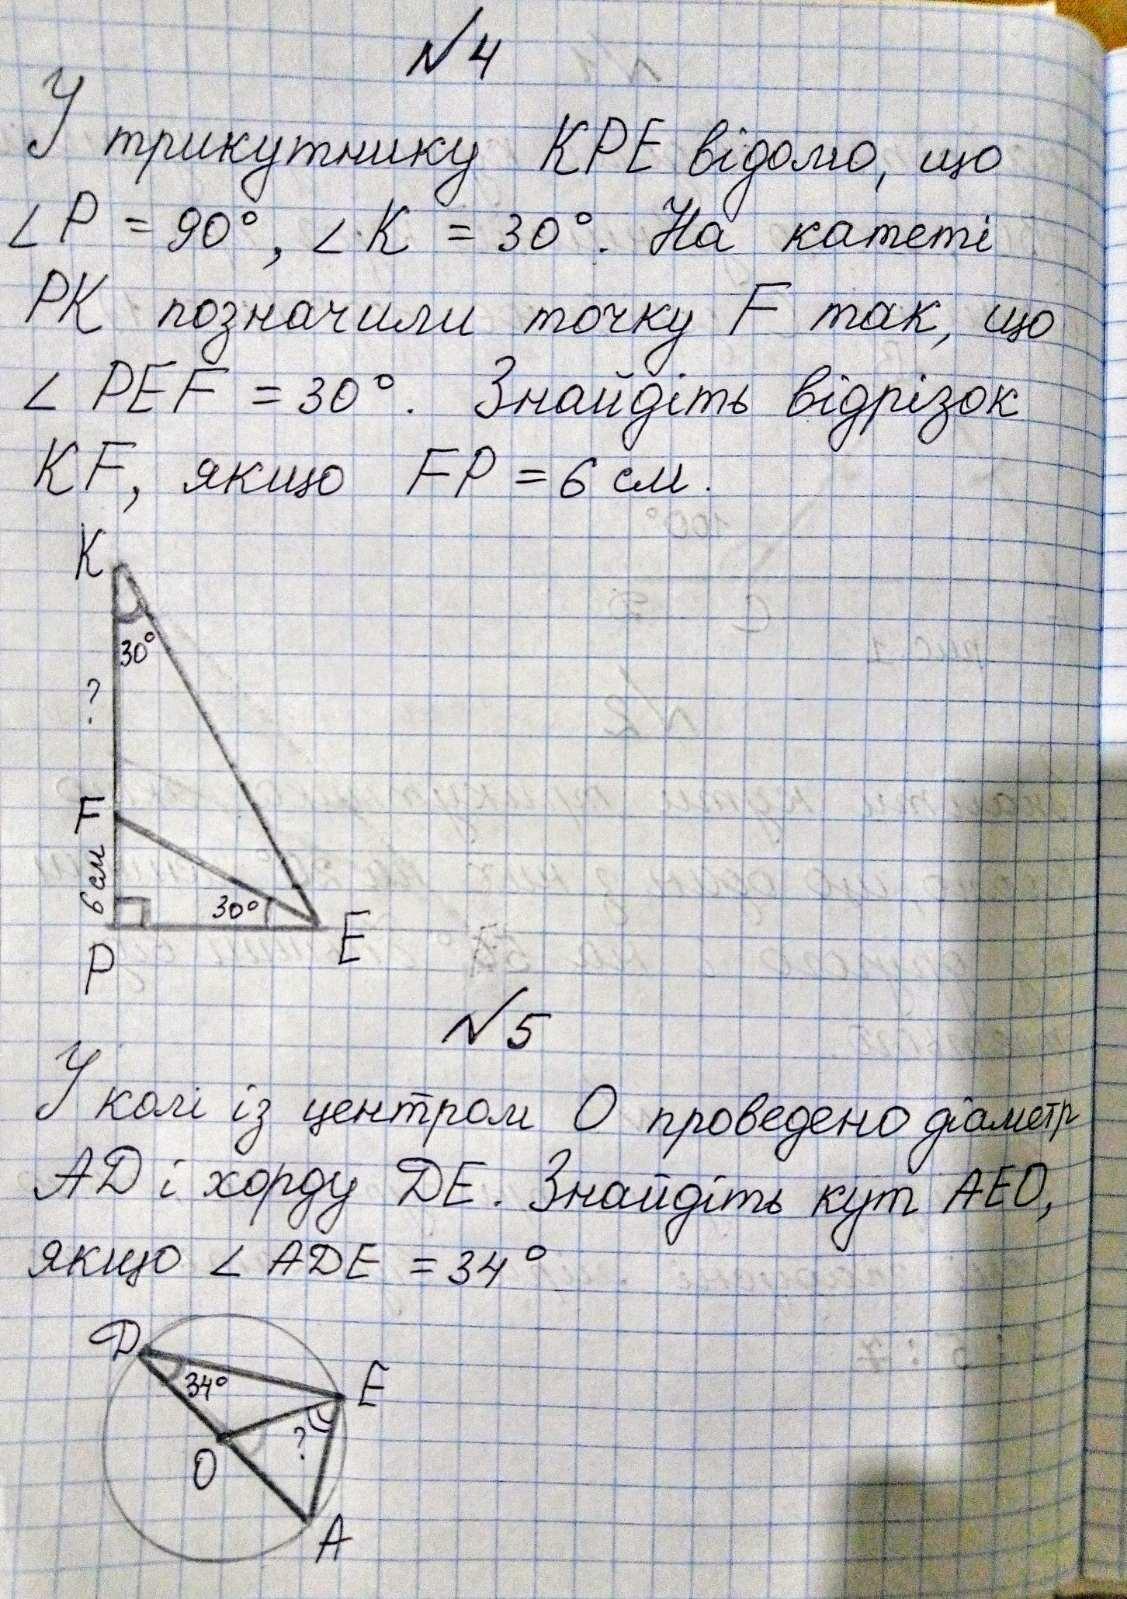 №4
У трикутнику КРЕ відомо, що
∠P = 90°, ∠K = 30°. На катеті
РК позначили точку F так, що
∠PEF = 30°. Знайдіть відрізок
KF, якщо FP = 6 см.
K
30°
?
F
6 см
30°
P
E
№5
У колі із центром О проведено діаметр
AD і хорду DE. Знайдіть кут AEO,
якщо ∠ADE = 34°
D
E
34°
?
O
A